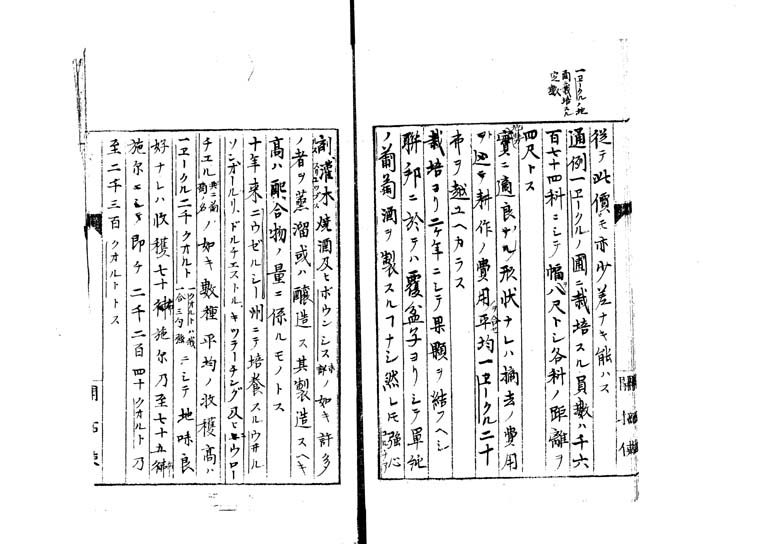 一ヱークルノ地
面栽培スル
定数
従テ此價モ亦少差ナキ能ハス
通例一ヱークルノ圃ニ栽培スル員数ハ千六
百七十四科ニシテ幅八尺トシ各科ノ距離ヲ
四尺トス
實ニ適良ナル形状ナレハ摘去ノ費用
ヲ耕作ノ費用平均一ヱークル二十
布ヲ越ユヘカラス
栽培ヨリ二ケ年ニシテ果顆ヲ結フヘシ
聯邦ニ於テハ覆盆子ヨリシテ單純
ノ葡萄酒ヲ製スルフナシ然レモ強心
剤灌水焼酒及ヒボウンシスノ如キ許多
ノ者ヲ蒸溜或ハ醸造ス其製造スヘキ
高ハ配合物ノ量ニ係ルモノトス
十年来ニウゼルシー州ニテ培養スルウヰル
ソンオールリ、ドルチエストル、キツラーチング及ヒニウロー
チエルノ如キ數種平均ノ收穫高ハ
一ヱークル二千クオルト一クオルトハ我一合三勺強ニシテ地味良
好ナレハ收穫七十 施尔乃至七十五
施尔ニシテ即チ二千二百四十クオルト乃
至二千三百クオルトトス
開拓使